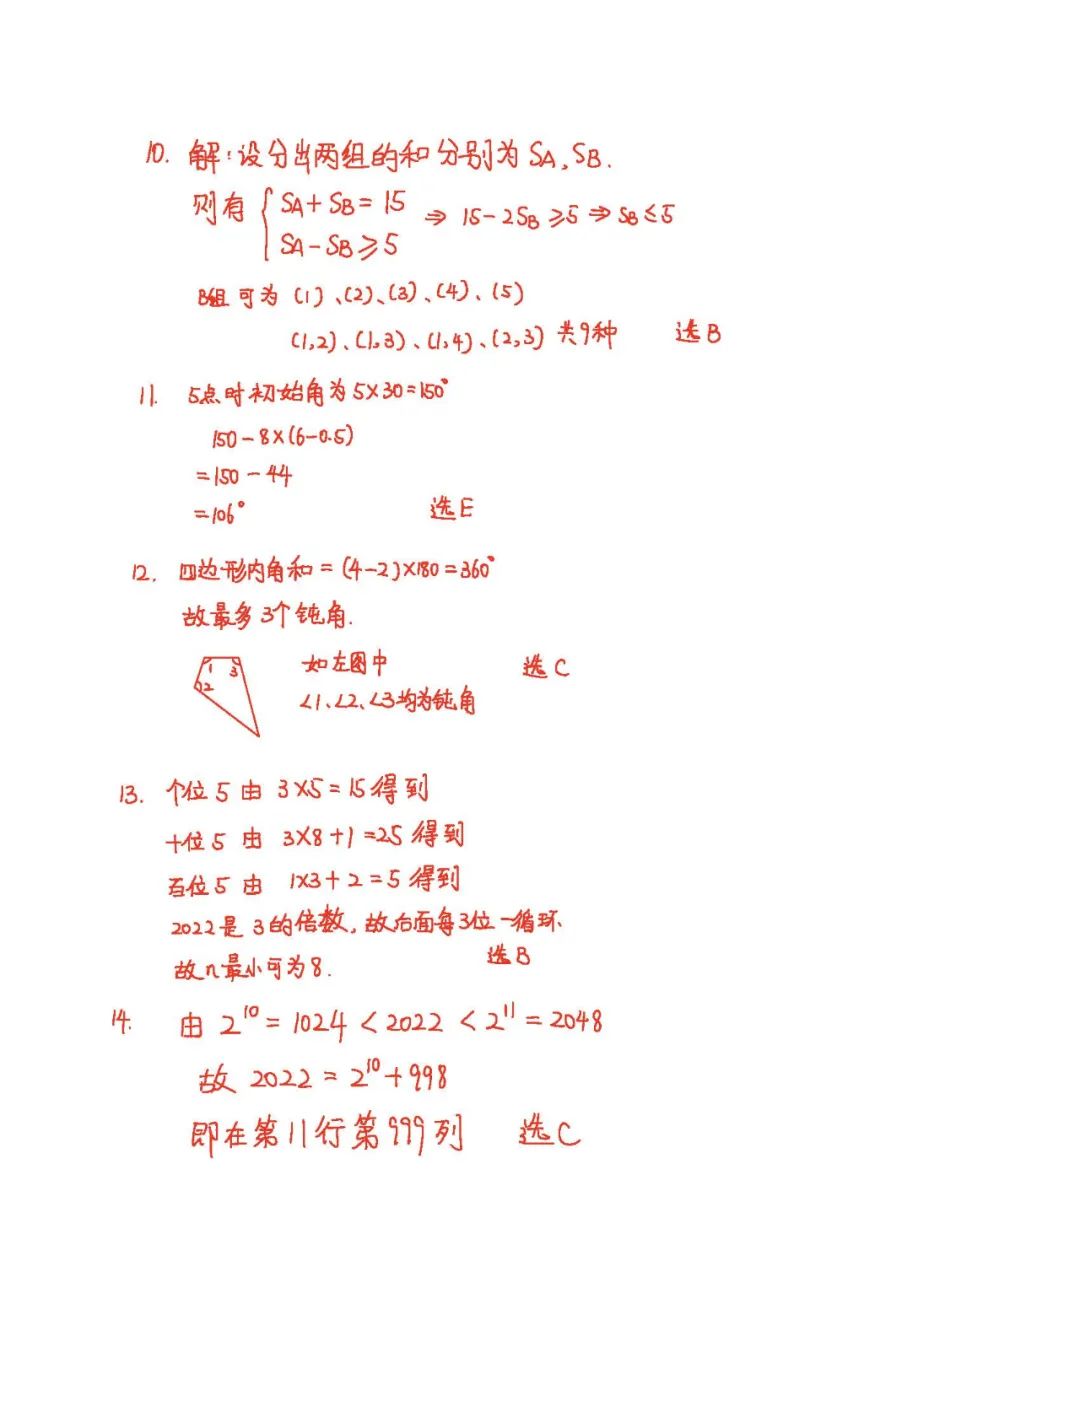 10. 解:设分出两组的和分别为 SA,SB.
则有 { SA+SB=15
SA-SB≥5 ⇒ 15-2SB≥5 ⇒ SB≤5
B组可为 (1)、(2)、(3)、(4)、(5)
(1,2)、(1,3)、(1,4)、(2,3) 共9种 选B
11. 5点时初始角为5×30=150°
150-8×(6-0.5)
=150-44
=106° 选E
12. 四边形内角和=(4-2)×180=360°
故最多3个钝角.
1 3 2
如左图中 选C
∠1、∠2、∠3均为钝角
13. 个位5由 3×5=15得到
十位5由 3×8+1=25得到
百位5由 1×3+2=5得到
2022是3的倍数,故后面每3位一循环.
故n最小可为8. 选B
14. 由 2^10=1024<2022<2^11=2048
故 2022=2^10+998
即在第11行第999列 选C